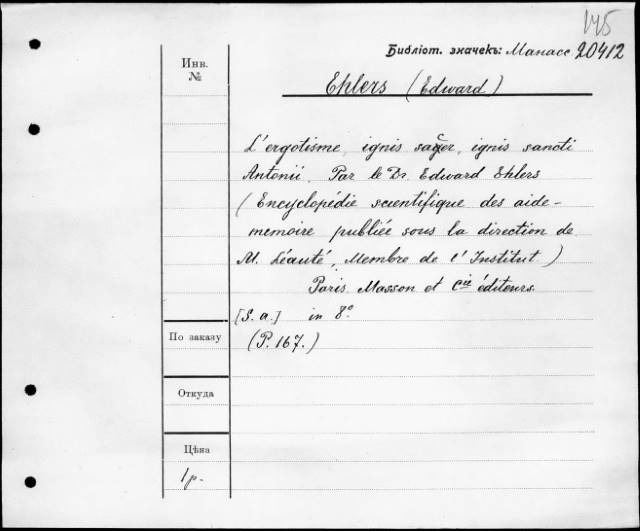 145
Библіот. значекъ: Манасс. 20412
Инв.
№
Ehlers (Edward)
L'ergotisme, ignis sacer, ignis sancti
Antonii. Par le Dr. Edward Ehlers
(Encyclopédie scientifique des aide-
memoire publiée sous la direction de
M. Léauté, Membre de l'Institut)
Paris. Masson et Cie éditeurs.
[S. a.] in 8º
По заказу
(P. 167.)
Откуда
Цѣна
1 р.